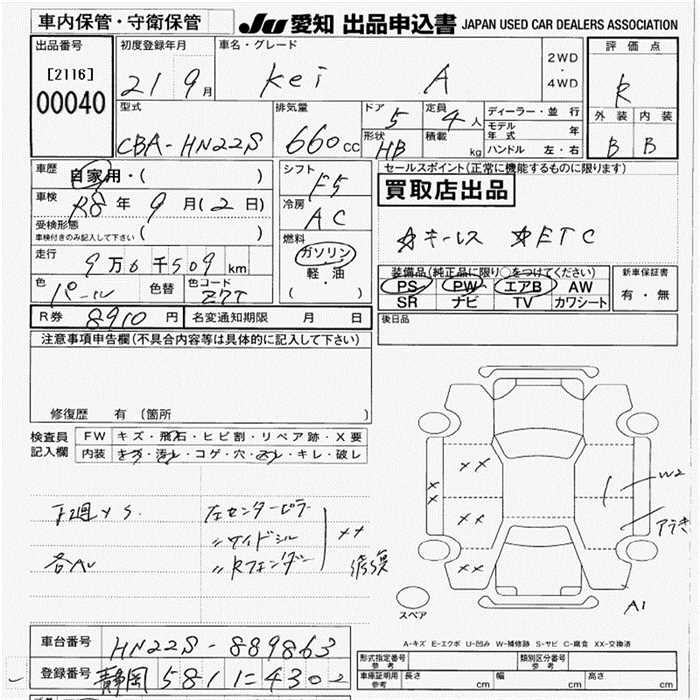 車内保管・守衛保管
JU 愛知 出品申込書 JAPAN USED CAR DEALERS ASSOCIATION
出品番号
[2116]
00040
初度登録年月
21 9月
車名・グレード
Kei A
2WD
・
4WD
評価点
R
外装 内装
B B
型式
CBA-HN22S
排気量
660cc
ドア
5
定員
4人
形状
HB
積載
kg
ディーラー・並行
モデル年式 年
ハンドル 左・右
車歴
自家用・( )
車検
R8年9月(2日)
受検形態
車検付きのみ記入して下さい ( )
走行
9万6千509km
色
パール
色替
色コード
Z7T
R券 8910円
名変通知期限 月 日
シフト
F5
冷房
AC
燃料
ガソリン
軽・油
( )
セールスポイント(正常に機能するものに限ります)
買取店出品
☆キーレス ☆ETC
装備品(純正品に限り○をつけてください)
PS PW エアB AW
SR ナビ TV カワシート
新車保証書
有・無
後日品
注意事項申告欄(不具合内容等は具体的に記入して下さい)
修復歴 有 (箇所
検査員
記入欄
FW キズ・飛石・ヒビ割・リペア跡・X要
内装 キズ・汚れ・コゲ・穴・スレ・キレ・破レ
下廻り S.
各AU
左センターピラー
〃サイドシル
〃Rフェンダー
××
修復
××
×
×
××
××
W2
アライキ
A1
スペア
A-キズ E-エクボ U-凹み W-補修跡 S-サビ C-腐食 XX-交換済
車台番号 HN22S-889863
登録番号 静岡 581 に 4302
形式指定番号
参考
類別区分番号
参考
車庫証明用
参考
長さ cm 幅 cm 高さ cm